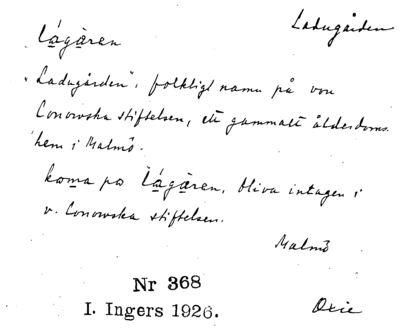 Ladugården
lágären
"Ladugården", folkligt namn på von
Conowska stiftelsen, ett gammalt ålderdoms-
hem i Malmö.
koma po lágären, bliva intagen i
v. Conowska stiftelsen.
Malmö
Nr 368
I. Ingers 1926.
Oxie